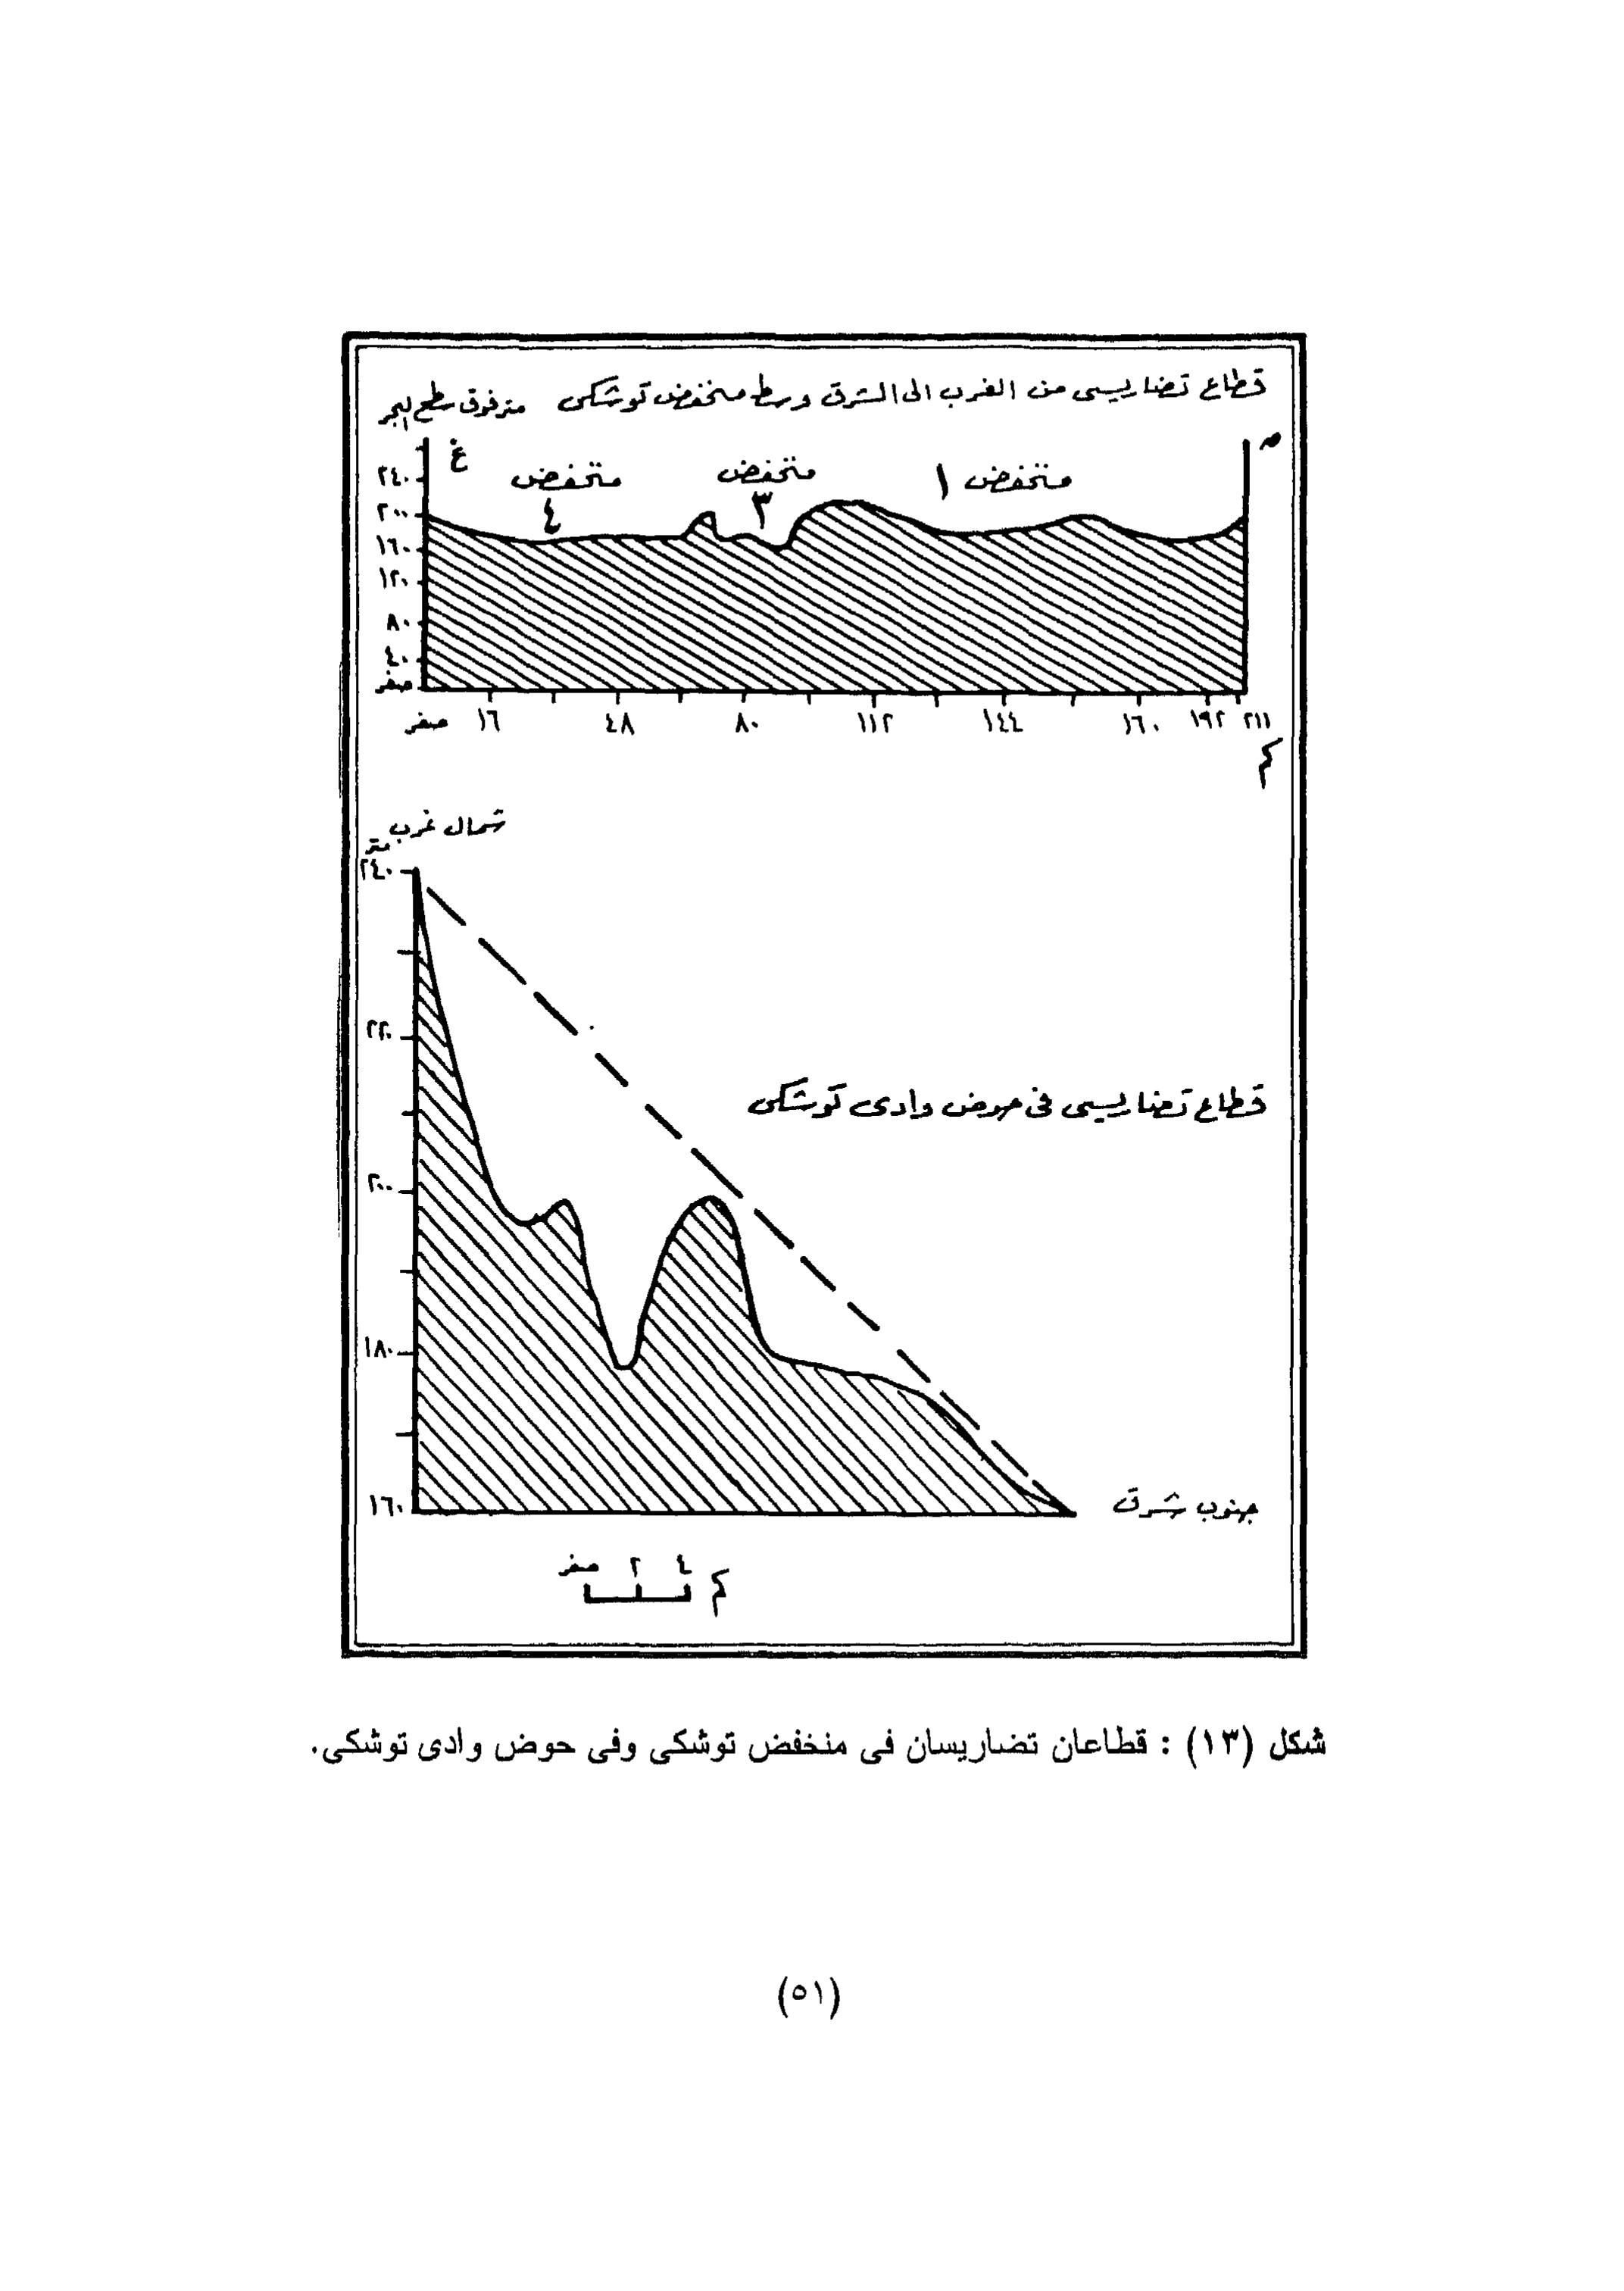 قطاع تضاريسى من الغرب الى الشرق وسط منخفض توشكى متر فوق سطح البحر
غ
٢٤٠
٢٠٠
١٦٠
١٢٠
٨٠
٤٠
صفر
منخفض ٤
منخفض ٣
منخفض ١
صفر ١٦ ٤٨ ٨٠ ١١٢ ١٤٤ ١٦٠ ١٩٢ ٢١١
كم
شمال غرب
متر
٢٤٠
٢٢٠
٢٠٠
١٨٠
١٦٠
قطاع تضاريسى فى حوض وادى توشكى
جنوب شرق
صفر ٢ ٤ كم
شكل (١٣) : قطاعان تضاريسان فى منخفض توشكى وفى حوض وادى توشكى.
(٥١)